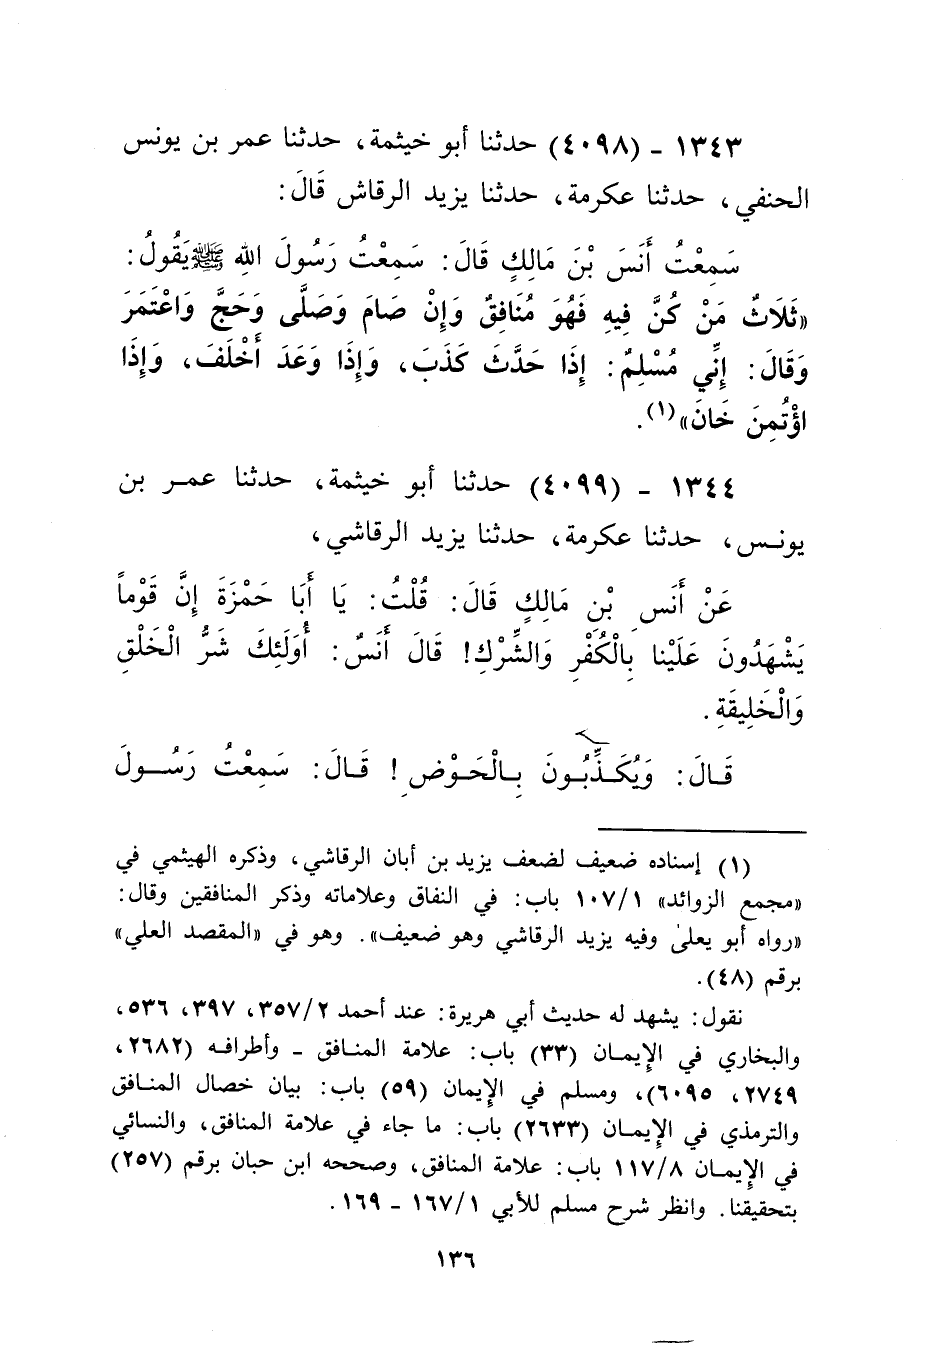 ١٣٤٣ - (٤٠٩٨) حدثنا أبو خيثمة، حدثنا عمر بن يونس
الحنفي، حدثنا عكرمة، حدثنا يزيد الرقاش قَالَ:
سَمِعْتُ أَنَسَ بْنَ مَالِكٍ قَالَ: سَمِعْتُ رَسُولَ اللهِ ﷺ يَقُولُ:
«ثَلَاثٌ مَنْ كُنَّ فِيهِ فَهُوَ مُنَافِقٌ وَإِنْ صَامَ وَصَلَّى وَحَجَّ وَاعْتَمَرَ
وَقَالَ: إِنِّي مُسْلِمٌ: إِذَا حَدَّثَ كَذَبَ، وَإِذَا وَعَدَ أَخْلَفَ، وَإِذَا
اؤْتُمِنَ خَانَ»(١).
١٣٤٤ - (٤٠٩٩) حدثنا أبو خيثمة، حدثنا عمر بن
يونس، حدثنا عكرمة، حدثنا يزيد الرقاشي،
عَنْ أَنَسِ بْنِ مَالِكٍ قَالَ: قُلْتُ: يَا أَبَا حَمْزَةَ إِنَّ قَوْماً
يَشْهَدُونَ عَلَيْنا بِالْكُفْرِ وَالشِّرْكِ! قَالَ أَنَسٌ: أُولَئِكَ شَرُّ الْخَلْقِ
وَالْخَلِيقَةِ.
قَالَ: وَيُكَذِّبُونَ بِالْحَوْضِ! قَالَ: سَمِعْتُ رَسُولَ
(١) إسناده ضعيف لضعف يزيد بن أبان الرقاشي، وذكره الهيثمي في
«مجمع الزوائد» ١٠٧/١ باب: في النفاق وعلاماته وذكر المنافقين وقال:
«رواه أبو يعلى وفيه يزيد الرقاشي وهو ضعيف». وهو في «المقصد العلي»
برقم (٤٨).
نقول: يشهد له حديث أبي هريرة: عند أحمد ٣٥٧/٢، ٣٩٧، ٥٣٦،
والبخاري في الإيمان (٣٣) باب: علامة المنافق - وأطرافه (٢٦٨٢،
٢٧٤٩، ٦٠٩٥)، ومسلم في الإيمان (٥٩) باب: بيان خصال المنافق
والترمذي في الإيمان (٢٦٣٣) باب: ما جاء في علامة المنافق، والنسائي
في الإيمان ١١٧/٨ باب: علامة المنافق، وصححه ابن حبان برقم (٢٥٧)
بتحقيقنا. وانظر شرح مسلم للأبي ١٦٧/١ - ١٦٩.
١٣٦